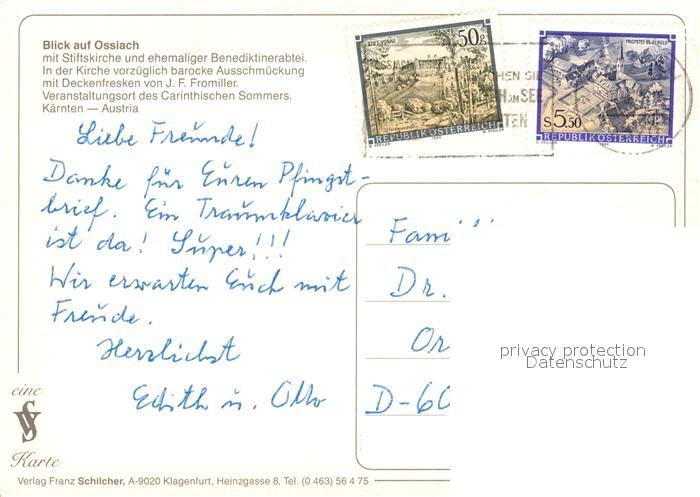 Blick auf Ossiach
mit Stiftskirche und ehemaliger Benediktinerabtei.
In der Kirche vorzüglich barocke Ausschmückung
mit Deckenfresken von J. F. Fromiller.
Veranstaltungsort des Carinthischen Sommers.
Kärnten — Austria
STIFT VORAU
50g
REPUBLIK ÖSTERREICH
PROPSTEI ST. GEROLD
S 5.50
REPUBLIK ÖSTERREICH
Liebe Freunde!
Danke für Euren Pfingst-
brief. Ein Traumklavier
ist da! Super!!!
Wir erwarten Euch mit
Freude.
Herzlichst
Edith u. Otto
Fami
Dr.
Or
D-60
privacy protection
Datenschutz
eine
Karte
Verlag Franz Schilcher, A-9020 Klagenfurt, Heinzgasse 8, Tel. (0 463) 56 4 75